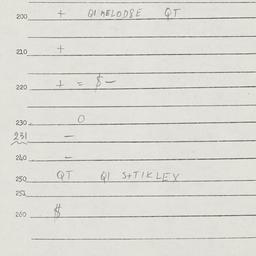 200 + QI MELODSE QT
210 +
220 + = $ -
230 0
231 -
240 -
250 QT QI S+TIKLEY
252
260 $